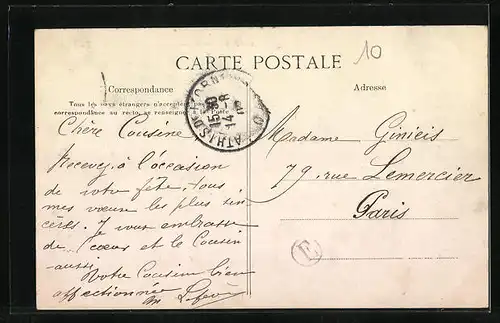 10
CARTE POSTALE
Correspondance
Adresse
Tous les pays étrangers n'acceptent pas
correspondance au recto, se renseigner à la Poste
ATHIS DE L'ORNE
15-30
14-8
Chère Cousine
Recevez à l'occasion
de votre fête, tous
mes vœux les plus sin
cères. Je vous embrasse
de cœur et le Cousin
aussi
Votre Cousine bien
affectionnée
Lefèv
Madame Ginieis
79, rue Lemercier
Paris
E